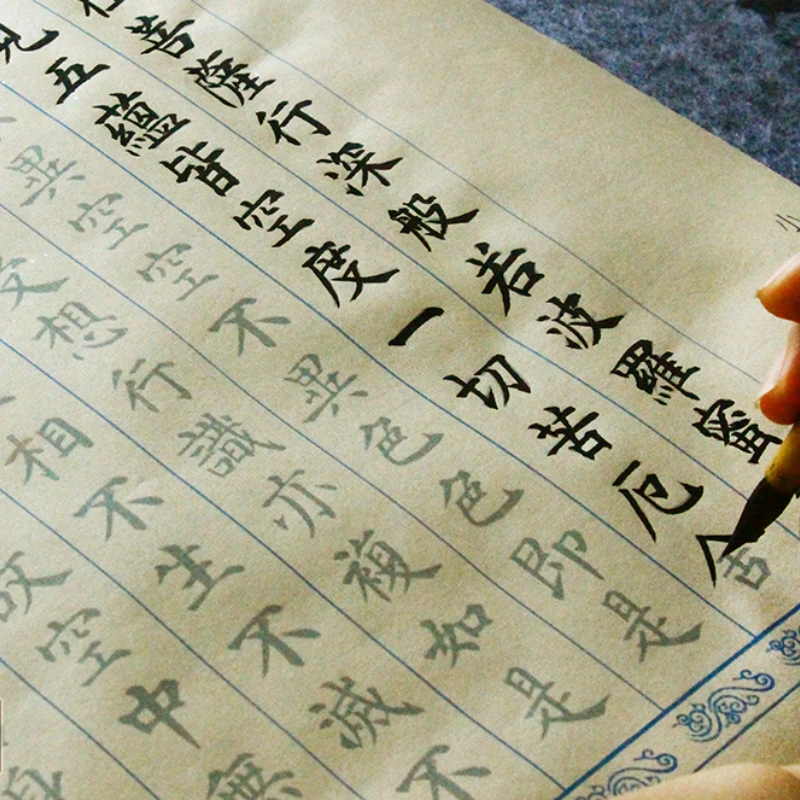 在菩薩行深般若波羅蜜
見五蘊皆空度一切苦厄舍
異空空不異色色即是
受想行識亦複如是
相不生不滅不
故空中無